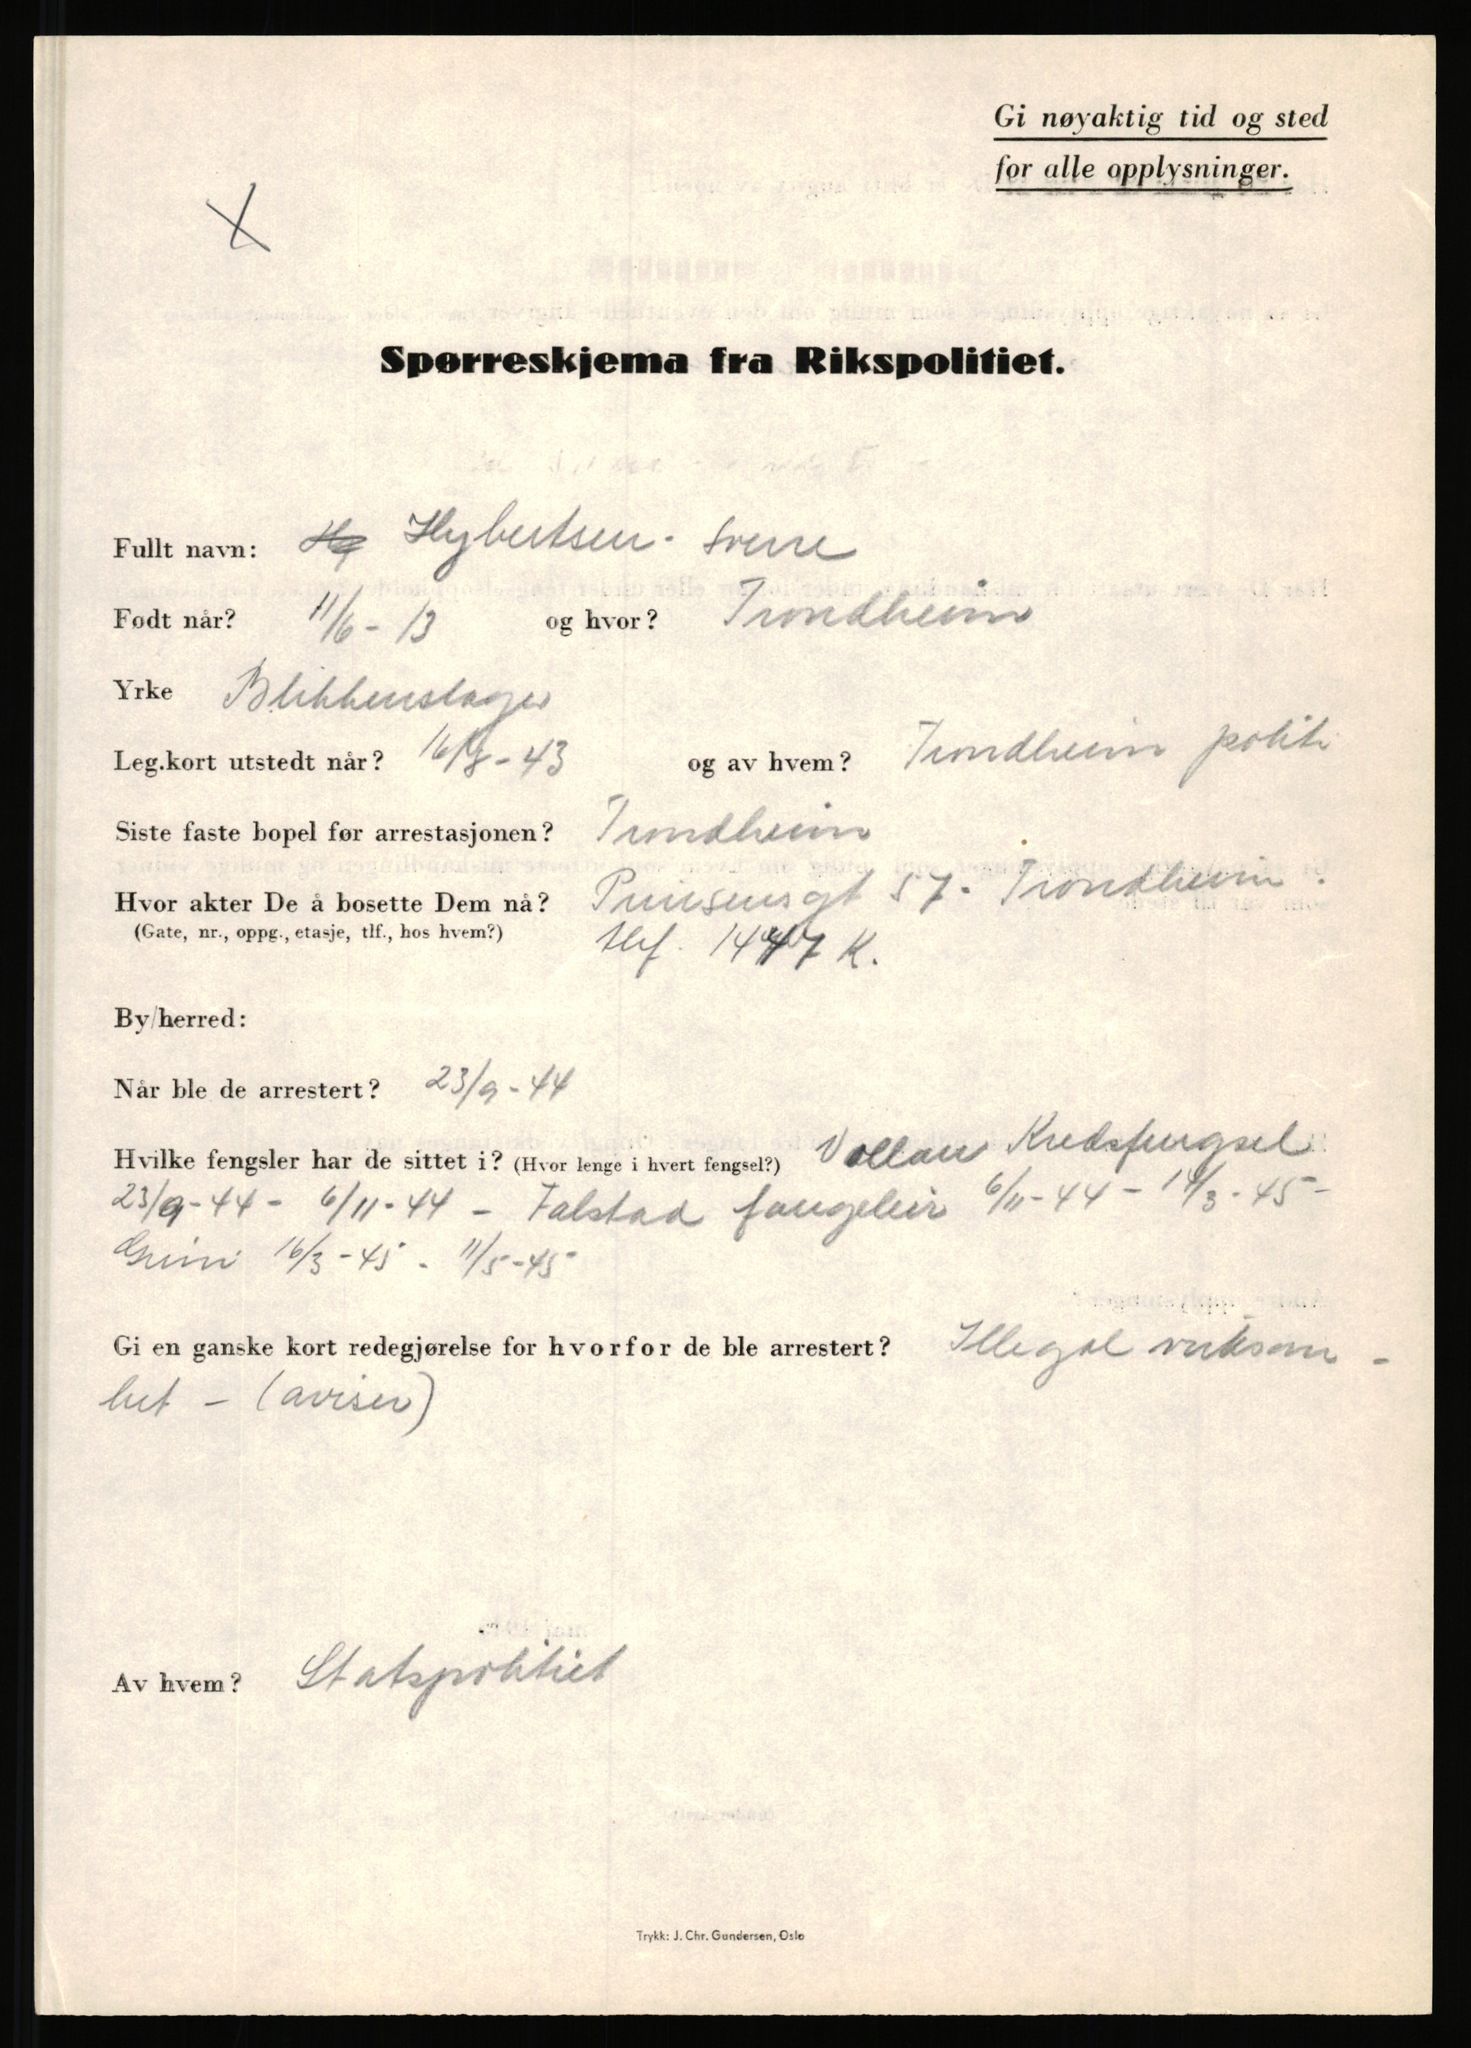 Gi nøyaktig tid og sted
for alle opplysninger.
Spørreskjema fra Rikspolitiet.
Fullt navn: Hybertsen - Sverre
Født når? 11/6 - 13 og hvor? Trondheim
Yrke Blikkenslager
Leg.kort utstedt når? 16/8 - 43 og av hvem? Trondheim politi
Siste faste bopel før arrestasjonen? Trondheim
Hvor akter De å bosette Dem nå? Prinsensgt 57 - Trondheim.
(Gate, nr., oppg., etasje, tlf., hos hvem?) tlf. 1447 K.
By/herred:
Når ble de arrestert? 23/9 - 44
Hvilke fengsler har de sittet i? (Hvor lenge i hvert fengsel?) Vollan Kredsfengsel
23/9-44 - 6/11-44 - Falstad fangeleir 6/11-44 - 14/3-45 -
Grini 16/3-45 - 11/5-45
Gi en ganske kort redegjørelse for hvorfor de ble arrestert? Illegal virksom-
het - (aviser)
Av hvem? Statspolitiet
Trykk: J. Chr. Gundersen, Oslo